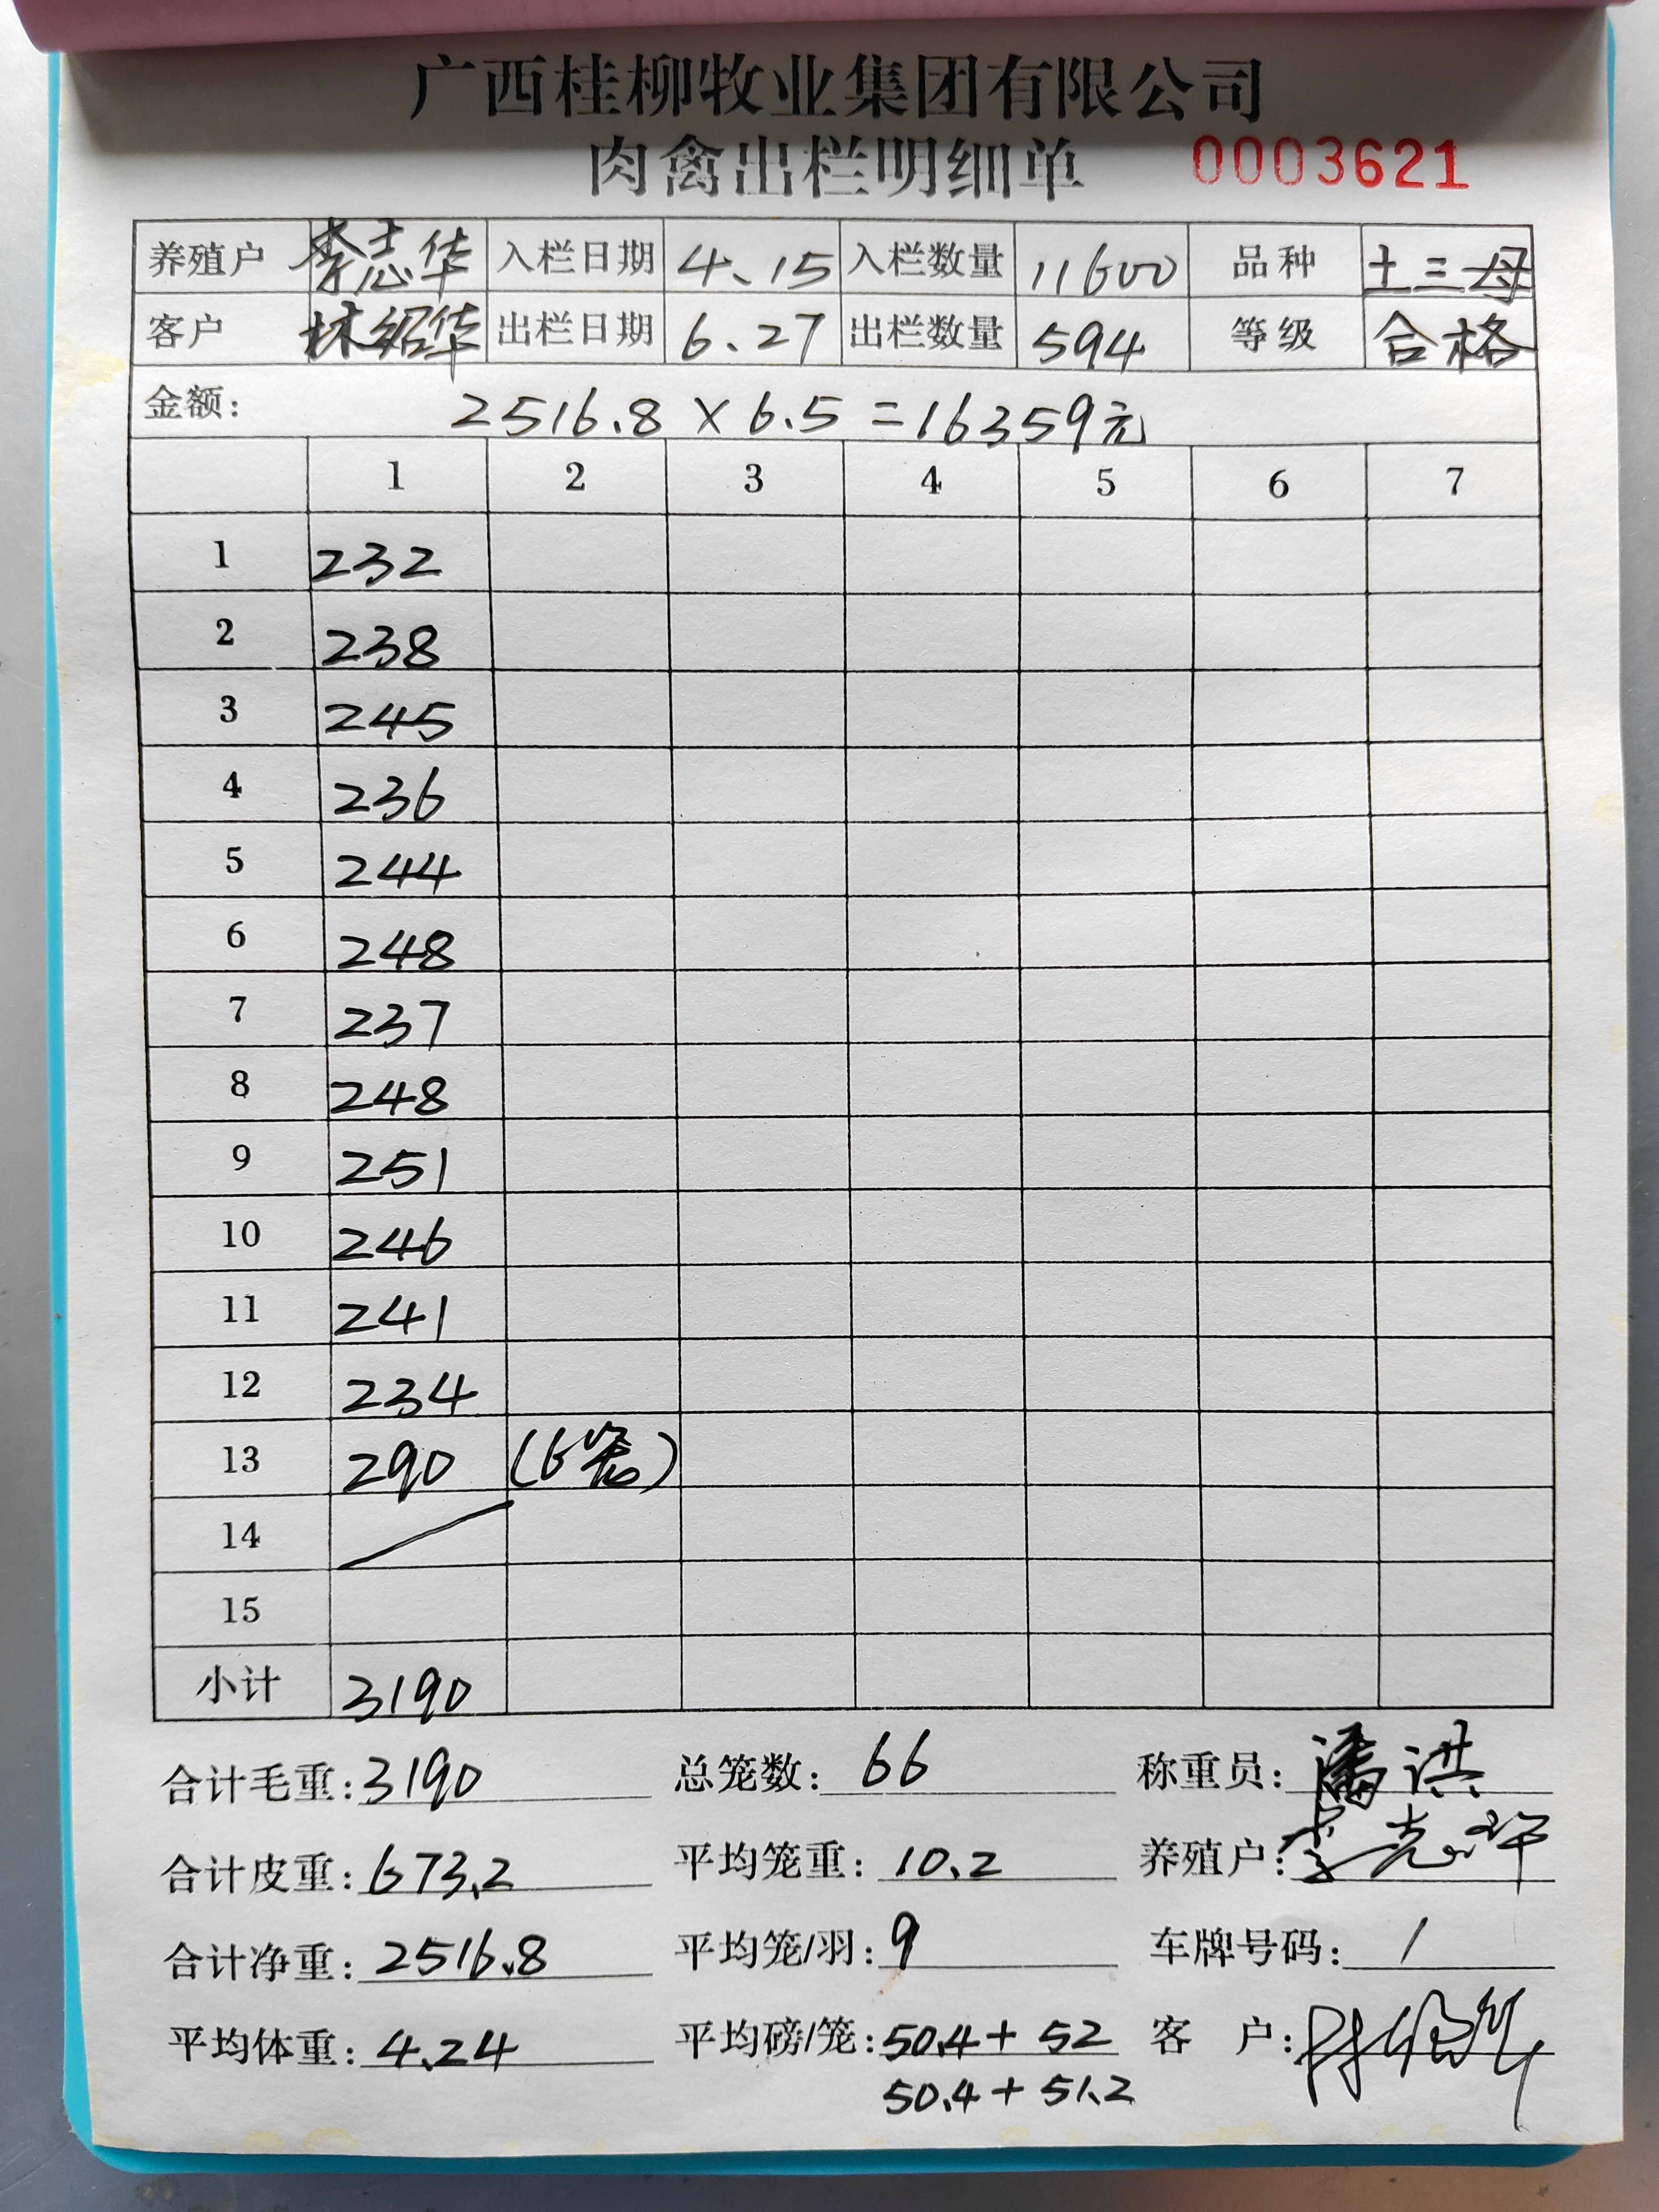 广西桂柳牧业集团有限公司
肉禽出栏明细单 0003621
养殖户 李志华 入栏日期 4、15 入栏数量 11600 品种 土三母
客户 林绍华 出栏日期 6.27 出栏数量 594 等级 合格
金额: 2516.8 × 6.5 = 16359元
1 2 3 4 5 6 7
1 232
2 238
3 245
4 236
5 244
6 248
7 237
8 248
9 251
10 246
11 241
12 234
13 290 (6笼)
14
15
小计 3190
合计毛重: 3190 总笼数: 66 称重员: 潘洪
合计皮重: 673.2 平均笼重: 10.2 养殖户: 李志华
合计净重: 2516.8 平均笼/羽: 9 车牌号码: /
平均体重: 4.24 平均磅/笼: 50.4 + 52 客 户:
50.4 + 51.2